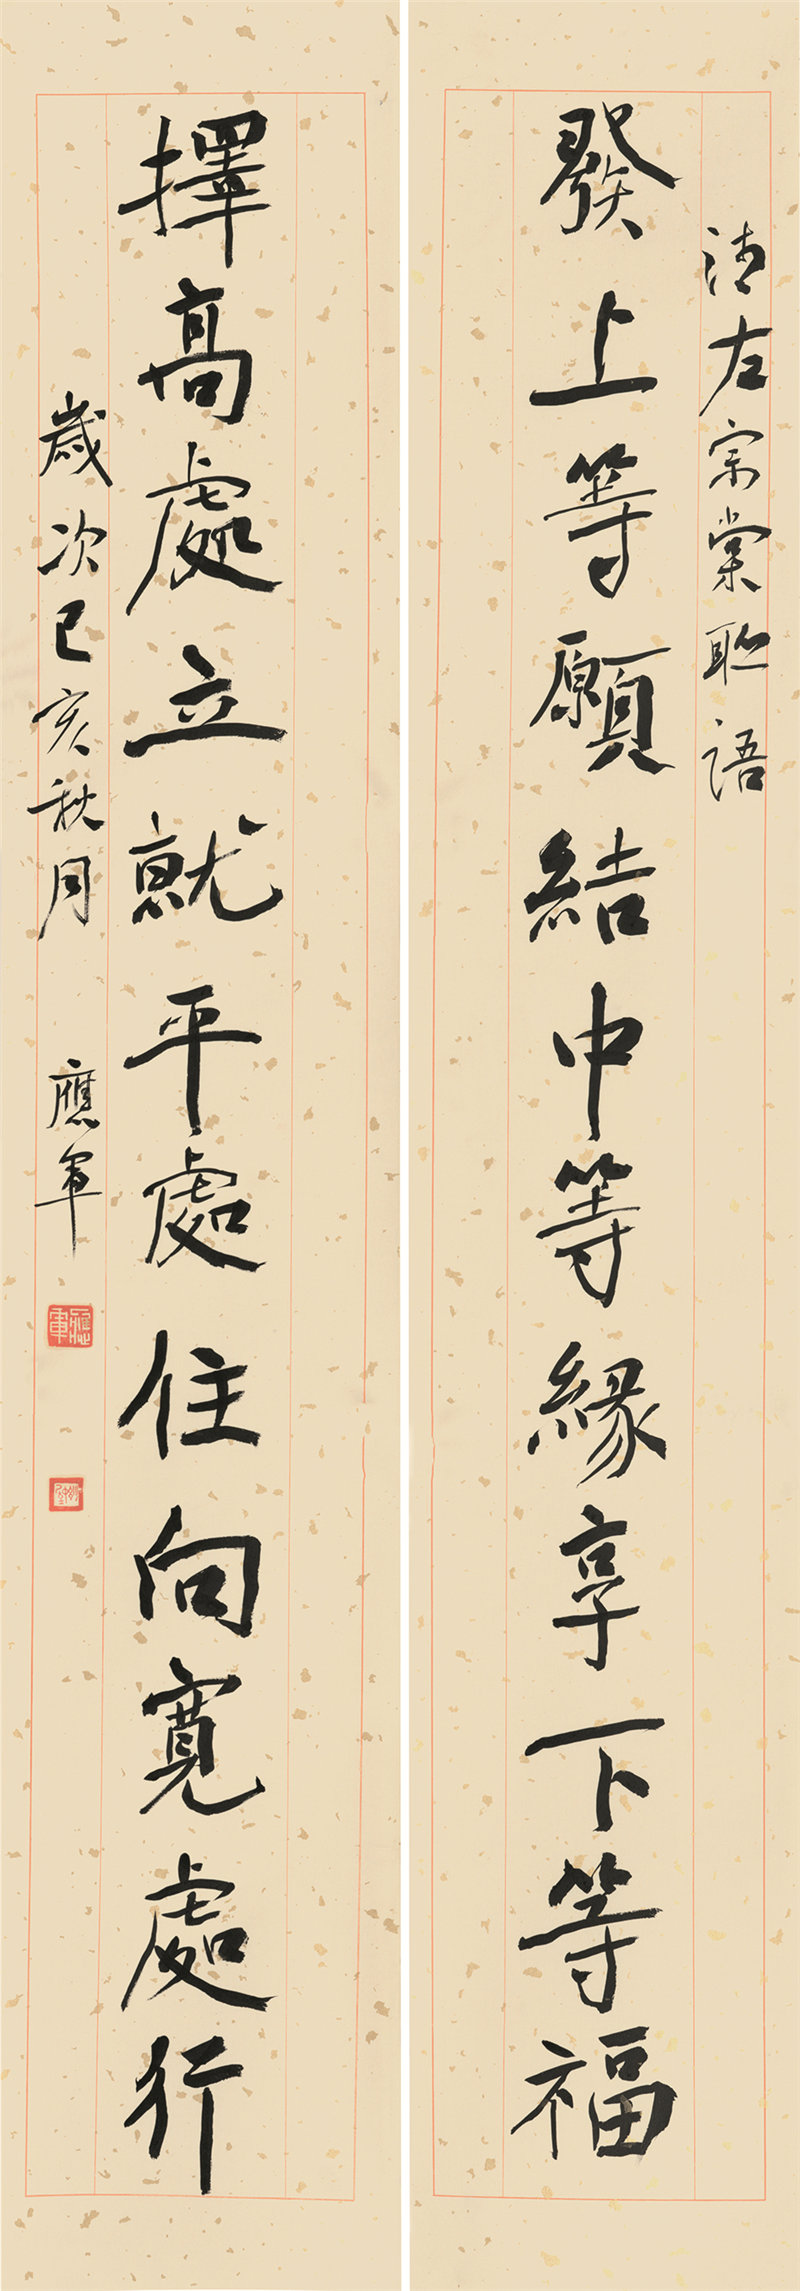 清左宗棠聯語
發上等願結中等緣享下等福
擇高處立就平處住向寬處行
歲次己亥秋月 應軍
應軍